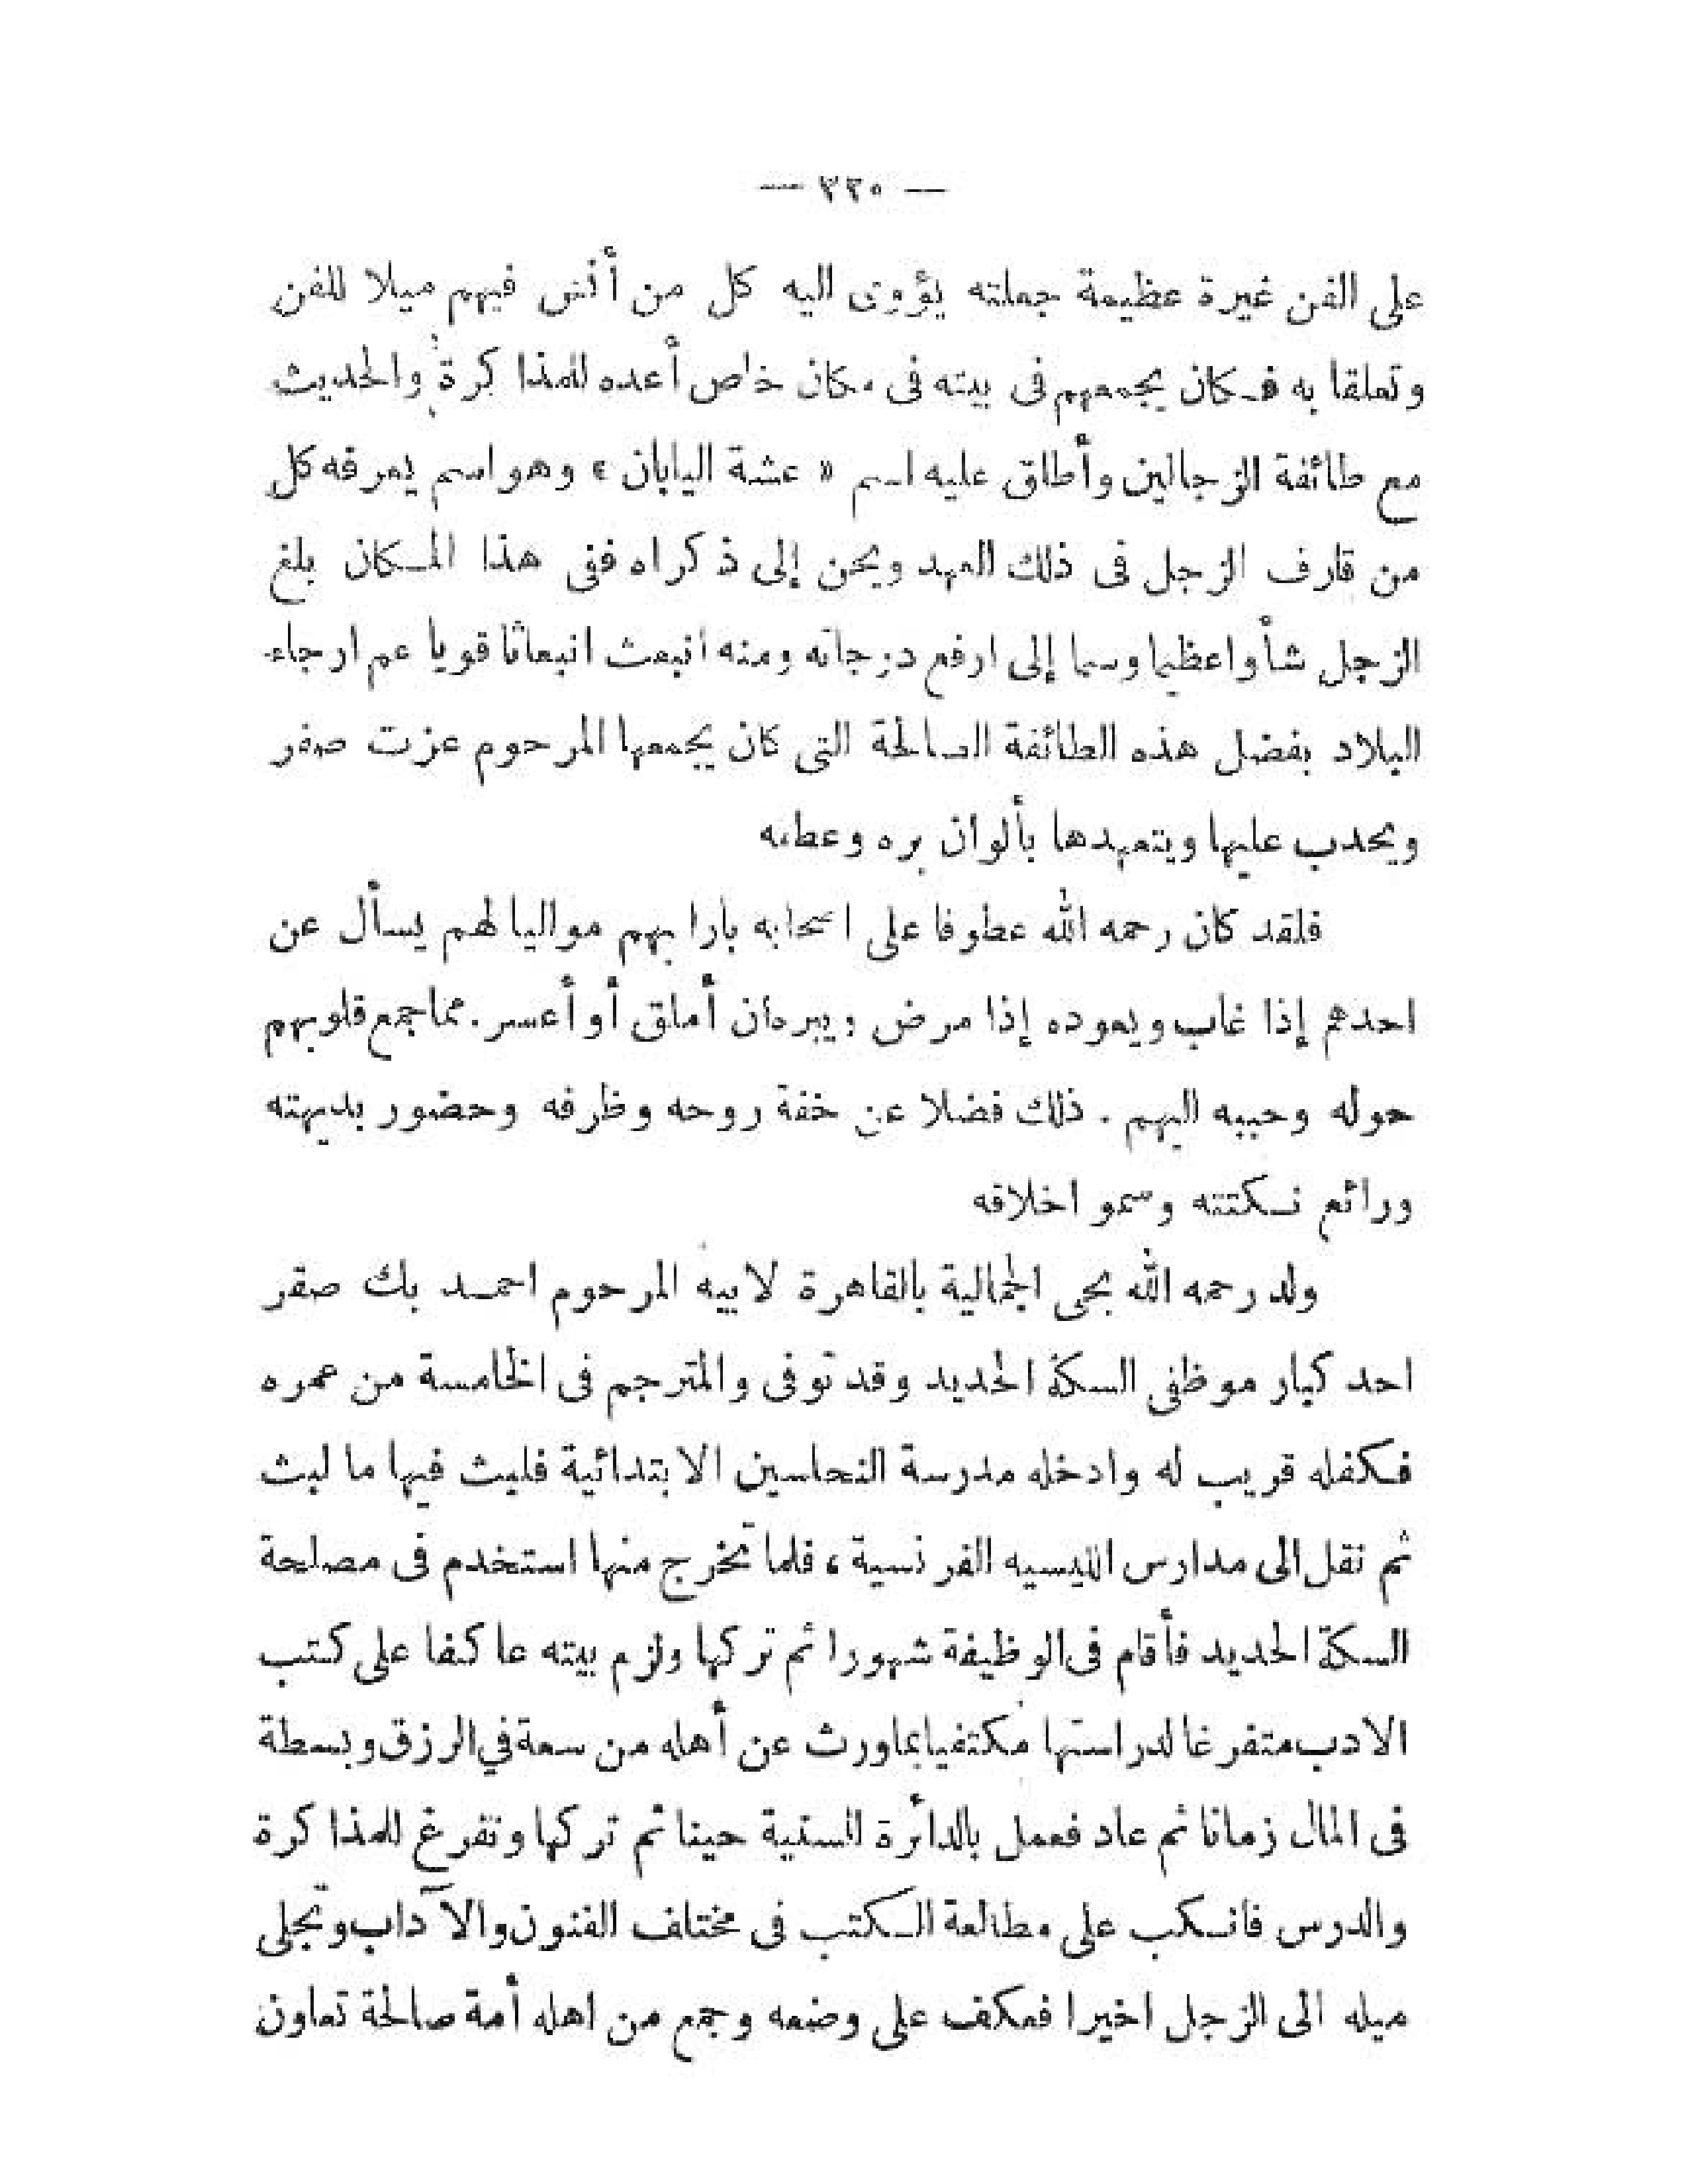 — ٢٢٠ —
على الفن غيرة عظيمة جعلته يؤوى اليه كل من أنس فيهم ميلا للفن
وتعلقا به فكان يجمعهم فى بيته فى مكان خاص أعده للمذا كرة والحديث
مع طائفة الزجالين وأطلق عليه اسم « عشة اليابان » وهو اسم يعرفه كل
من قارف الزجل فى ذلك العهد ويحن إلى ذكراه ففى هذا المكان بلغ
الزجل شأوا عظيما وسما إلى ارفع درجاته ومنه انبعث انبعاثا قويا عم ارجاء
البلاد بفضل هذه الطائفة الصالحة التى كان يجمعها المرحوم عزت صقر
ويحدب عليها ويتعهدها بألوان بره وعطفه
فلقد كان رحمه الله عطوفا على اصحابه بارا بهم مواليا لهم يسأل عن
احدهم إذا غاب ويعوده إذا مرض ويبره ان أملق أو أعسر . مما جمع قلوبهم
حوله وحببه اليهم . ذلك فضلا عن خفة روحه وظرفه وحضور بديهته
ورائع نكتته وسمو اخلاقه
ولد رحمه الله بحى الجمالية بالقاهرة لابيه المرحوم احمد بك صقر
احد كبار موظفى السكة الحديد وقد توفى والمترجم فى الخامسة من عمره
فكفله قريب له وادخله مدرسة النحاسين الابتدائية فلبث فيها ما لبث
ثم نقل الى مدارس الليسيه الفرنسية ، فلما تخرج منها استخدم فى مصلحة
السكة الحديد فأقام فى الوظيفة شهورا ثم تركها ولزم بيته عاكفا على كتب
الادب متفرغا لدراستها مكتفيا بما ورث عن أهله من سعة في الرزق وبسطة
فى المال زمانا ثم عاد فعمل بالدائرة السنية حينا ثم تركها وتفرغ للمذا كرة
والدرس فانكب على مطالعة الكتب فى مختلف الفنون والآداب وتجلى
ميله الى الزجل اخيرا فعكف على وضعه وجمع من اهله أمة صالحة تعاون